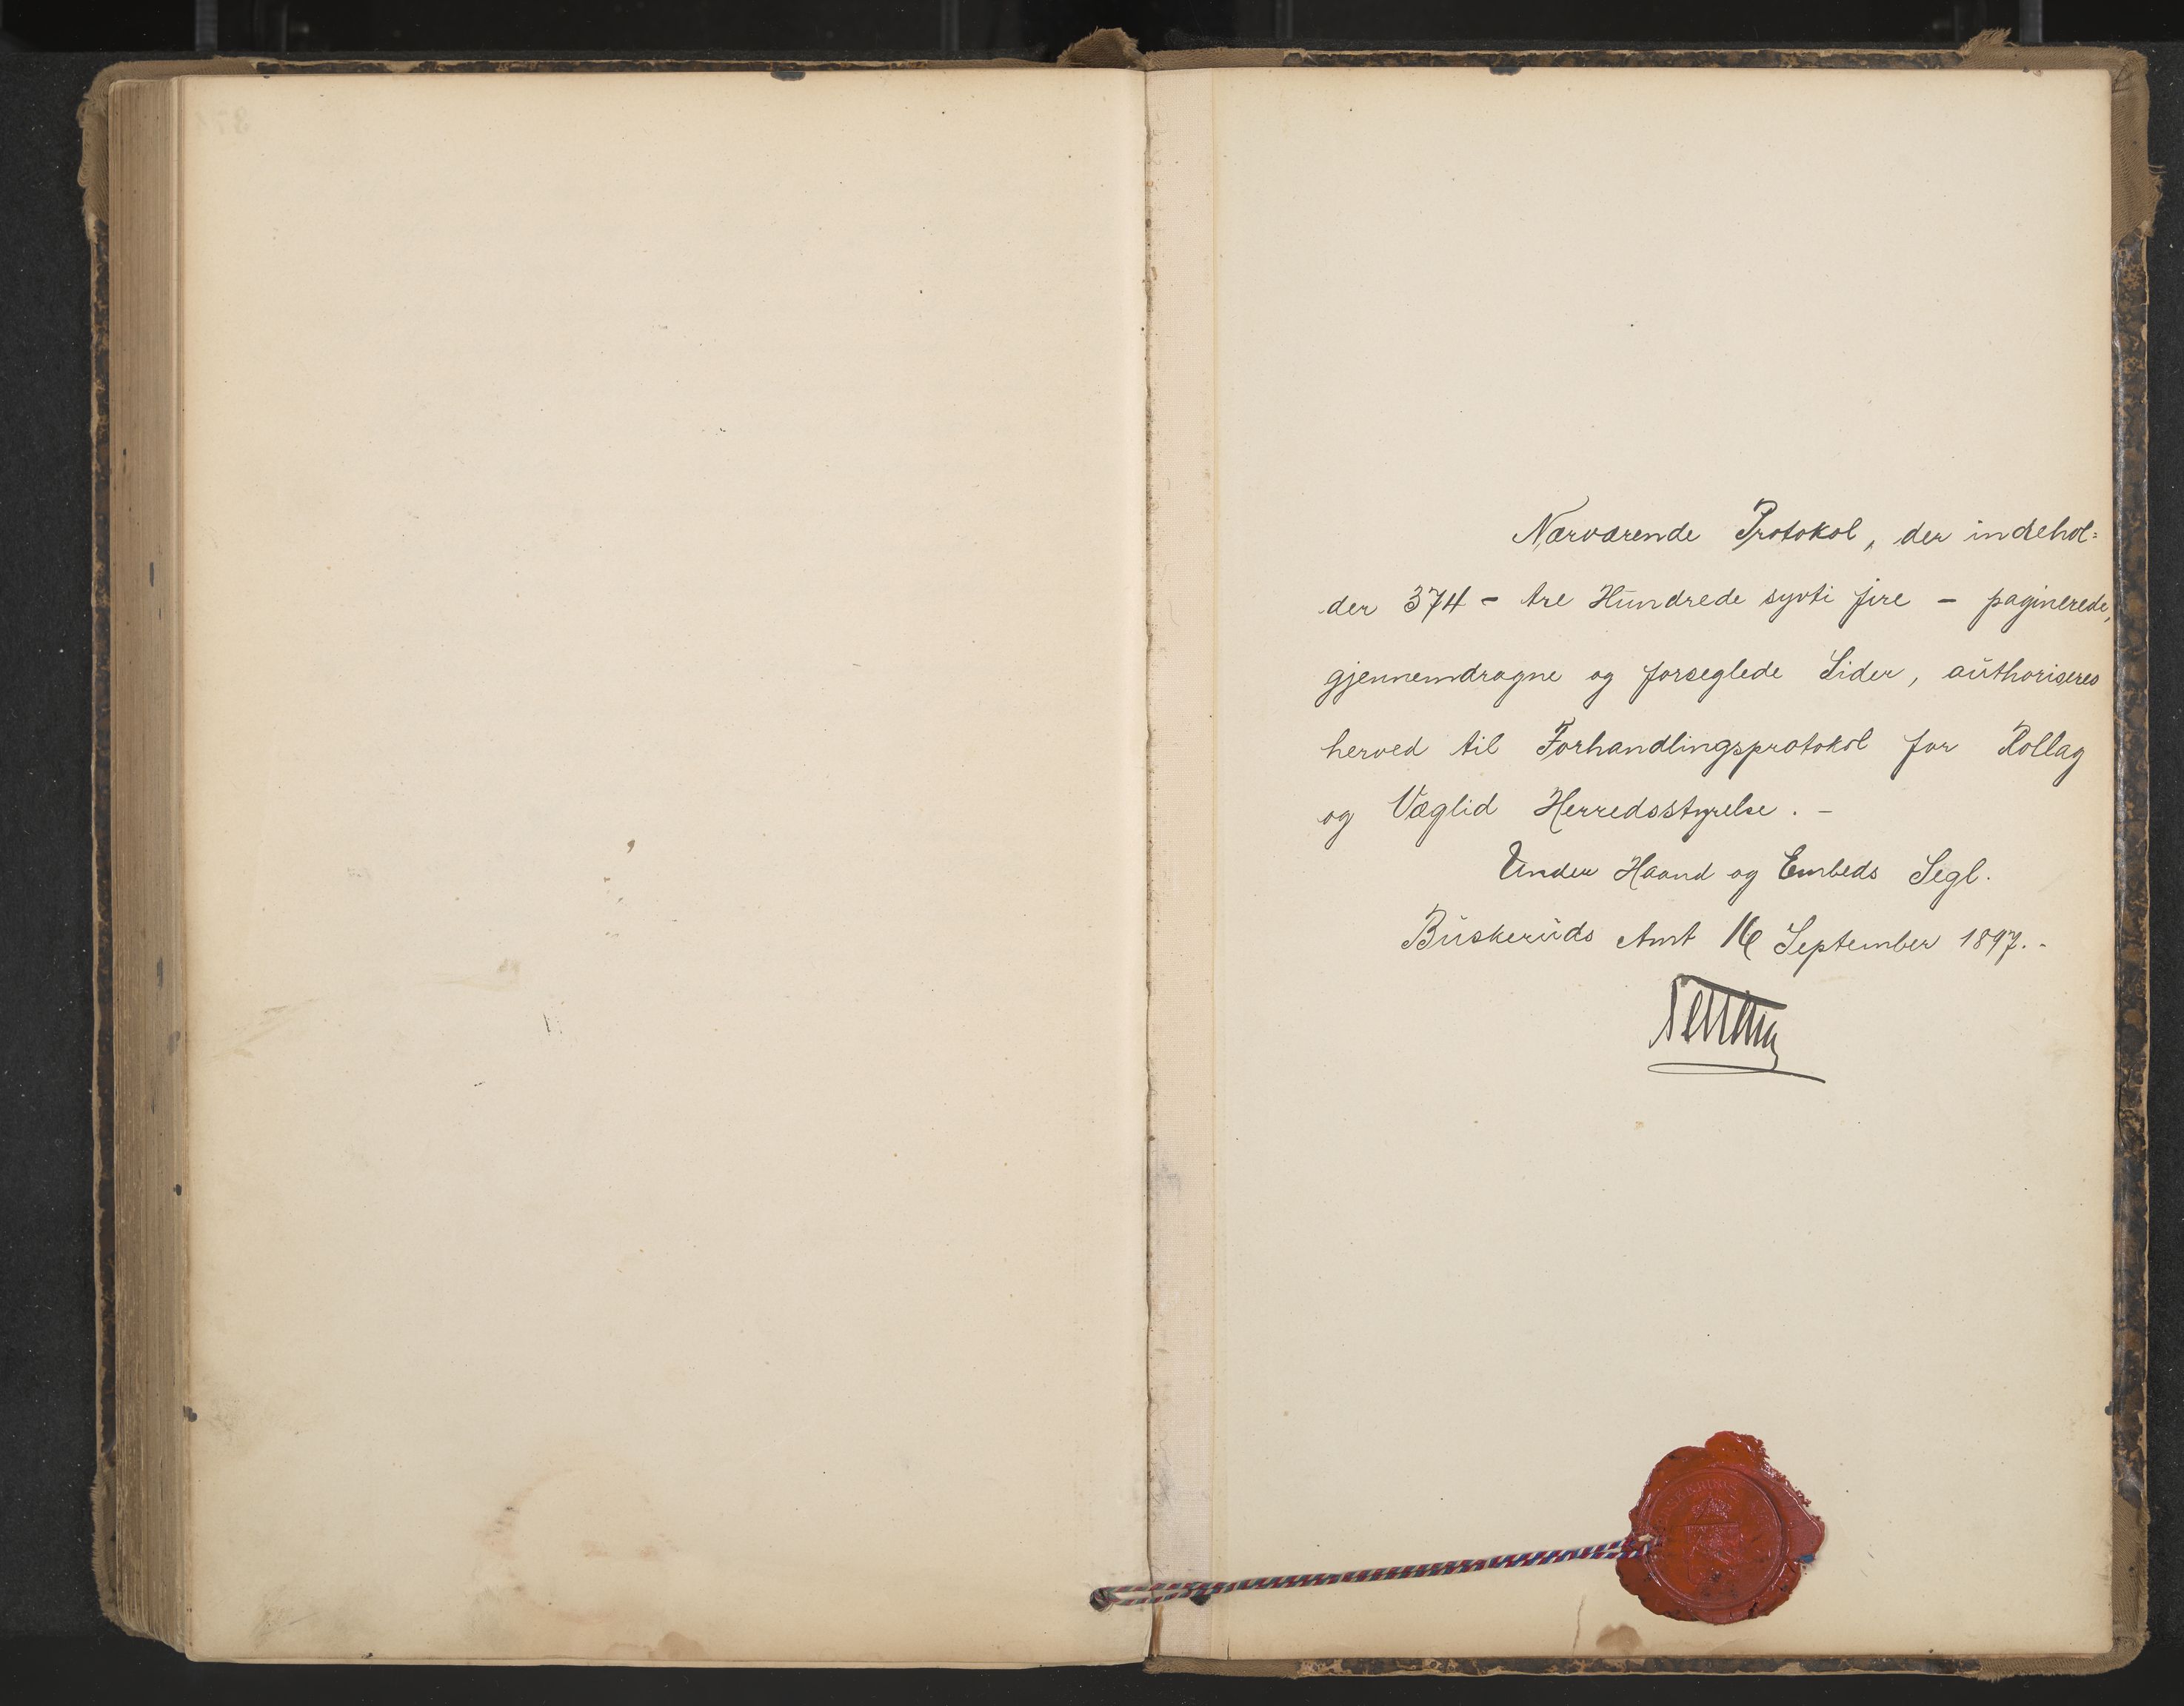 Nærværende Protokol, der indehol=
der 374 - tre Hundrede syvti fire - paginerede,
gjennemdragne og forseglede Sider, authoriseres
herved til Forhandlingsprotokol for Rollag
og Væglid Herredsstyrelse. -
Under Haand og Embeds Segl.
Buskeruds Amt 16 September 1897. -